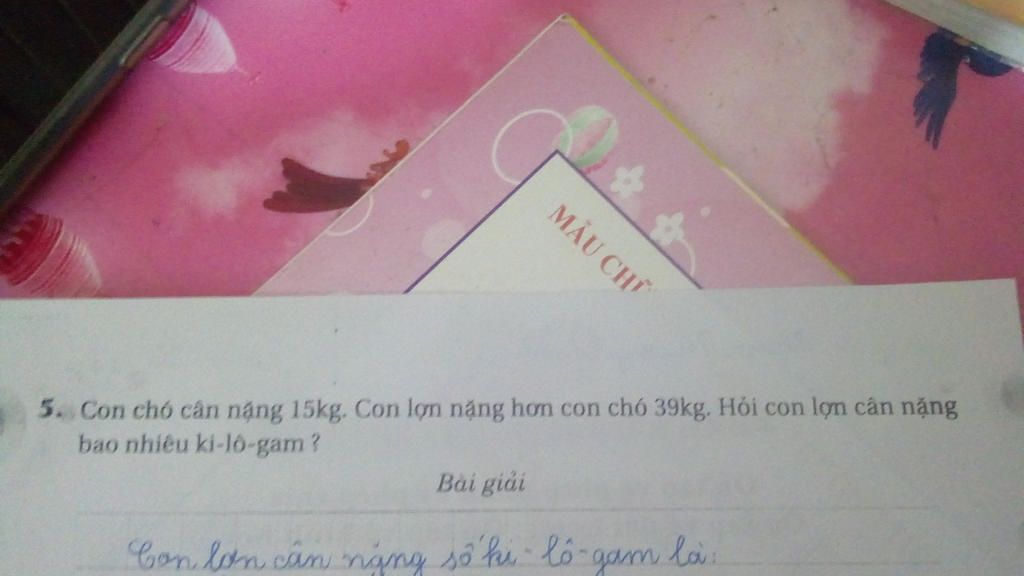 MẪU CHỮ
5. Con chó cân nặng 15kg. Con lợn nặng hơn con chó 39kg. Hỏi con lợn cân nặng
bao nhiêu ki-lô-gam ?
Bài giải
Con lợn cân nặng số ki-lô-gam là: